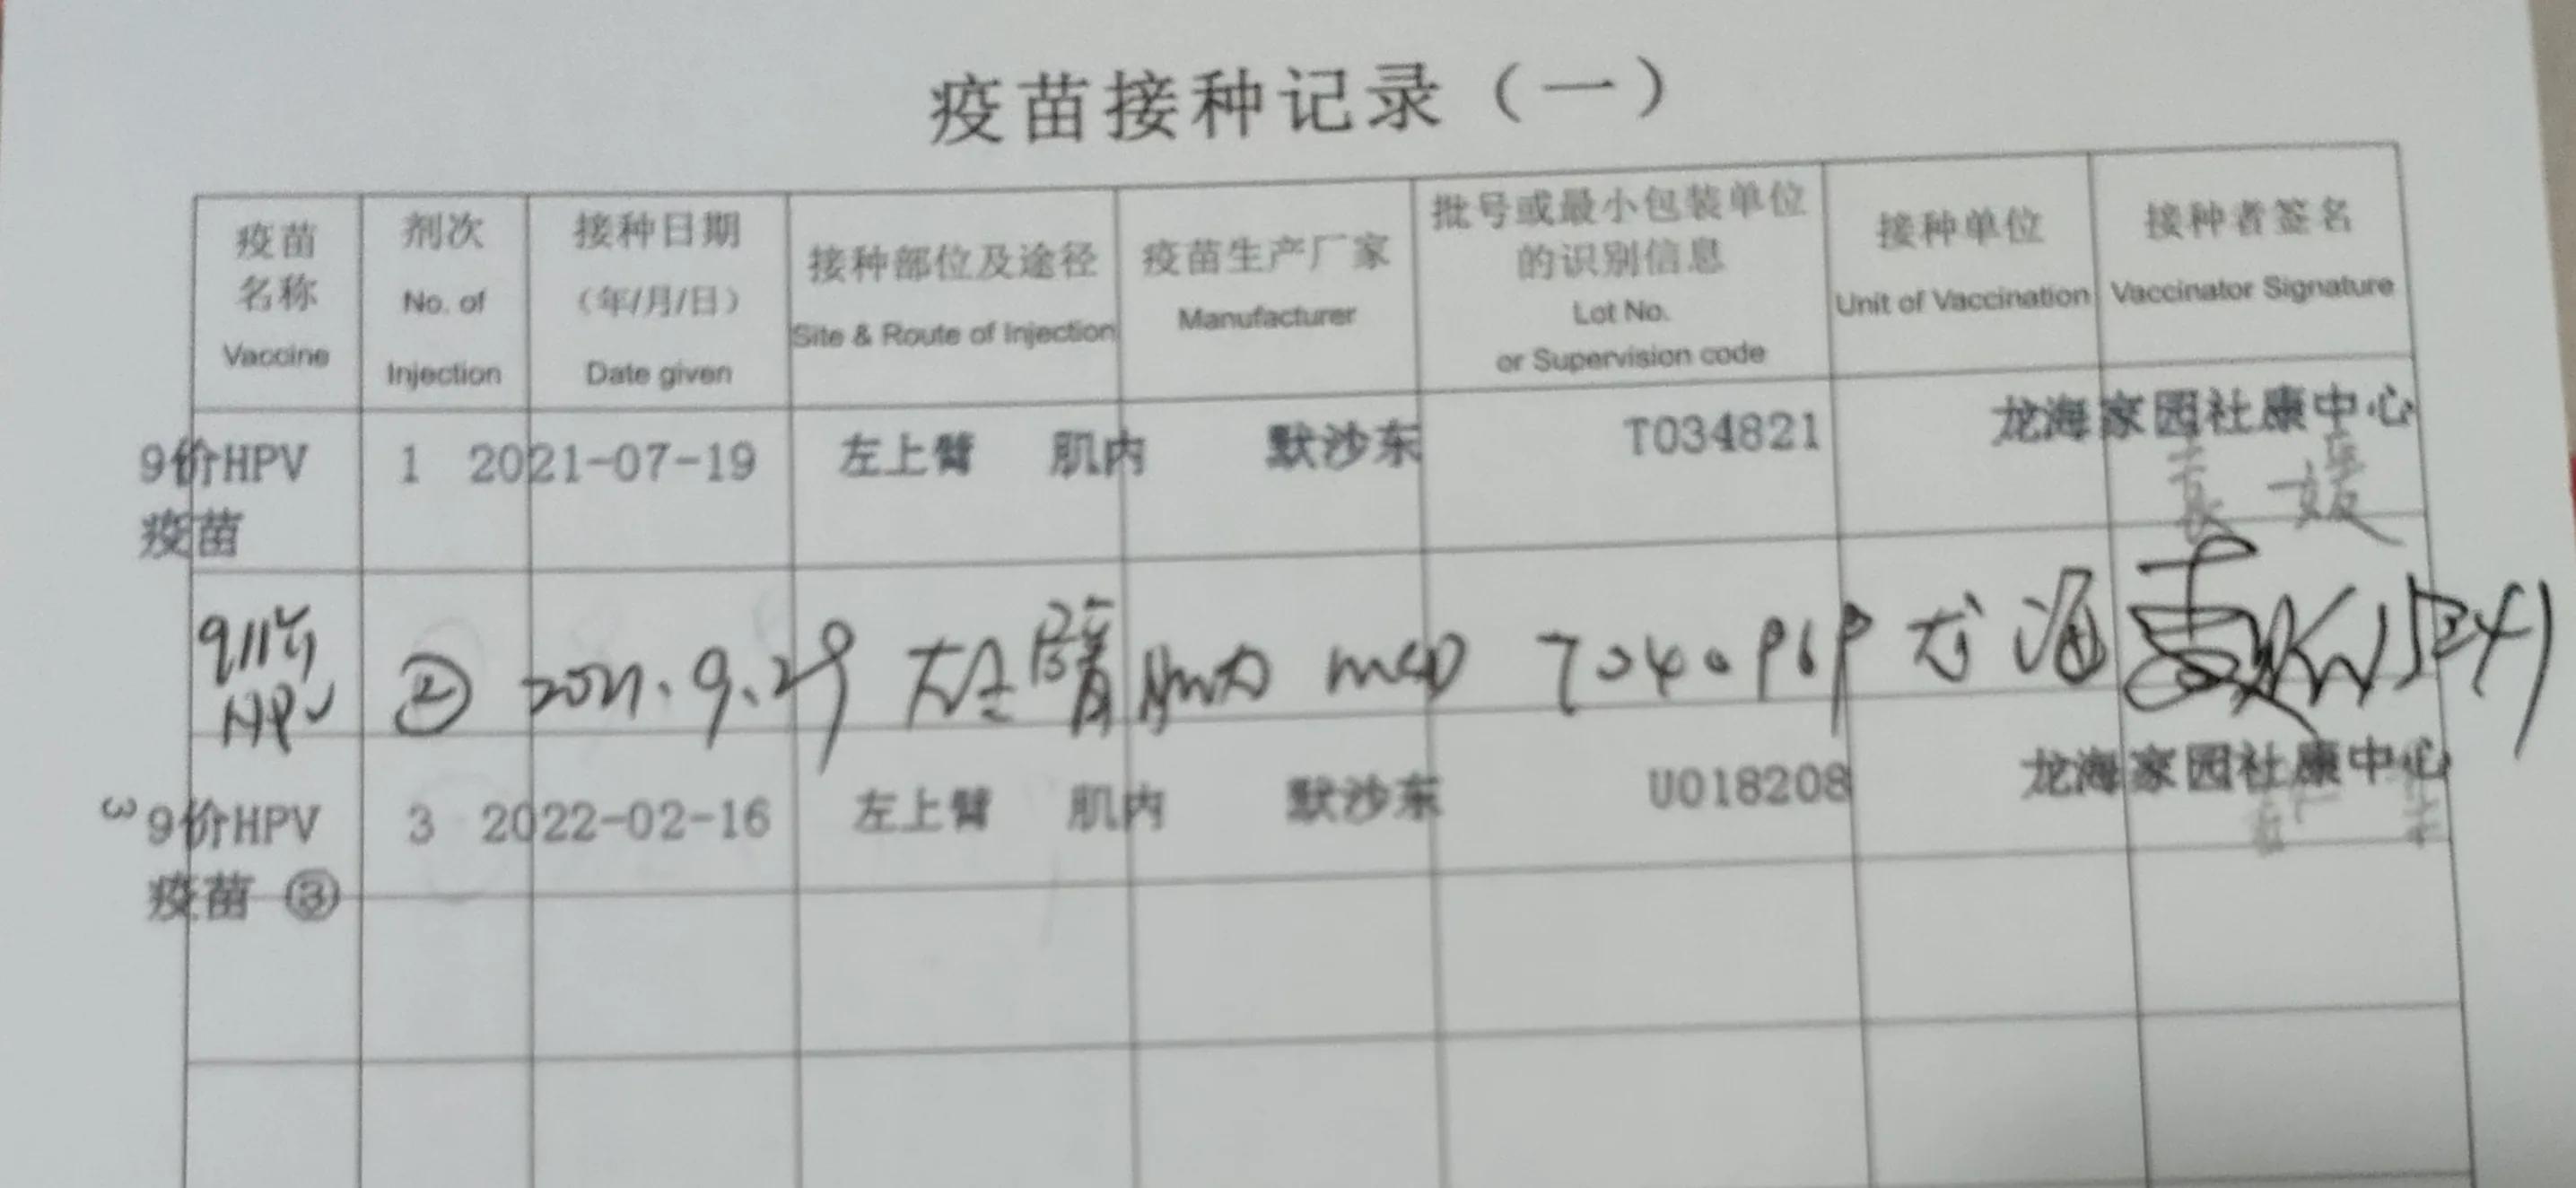 疫苗接种记录（一）
疫苗名称 Vaccine
剂次 No. of Injection
接种日期（年/月/日） Date given
接种部位及途径 Site & Route of Injection
疫苗生产厂家 Manufacturer
批号或最小包装单位的识别信息 Lot No. or Supervision code
接种单位 Unit of Vaccination
接种者签名 Vaccinator Signature
9价HPV疫苗 1 2021-07-19 左上臂 肌内 默沙东 T034821 龙海家园社康中心
袁媛
9价HPV ② 2021.9.29 左上臂 龙海
3 9价HPV疫苗 ③ 3 2022-02-16 左上臂 肌内 默沙东 U018208 龙海家园社康中心